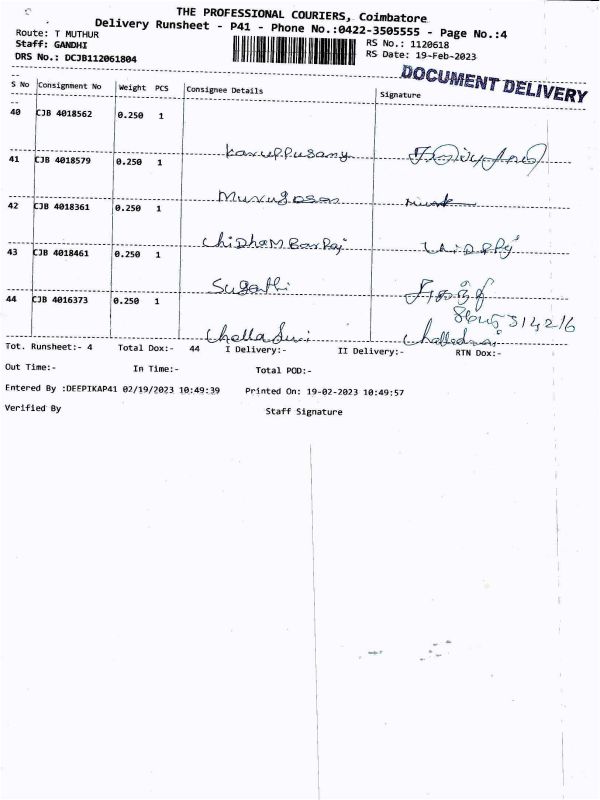 THE PROFESSIONAL COURIERS, Coimbatore
Delivery Runsheet - P41 - Phone No.:0422-3505555 - Page No.:4
Route: T MUTHUR
RS No.: 1120618
Staff: GANDHI
RS Date: 19-Feb-2023
DRS No.: DCJB112061804
DOCUMENT DELIVERY
S No Consignment No Weight PCS Consignee Details Signature
40 CJB 4018562 0.250 1
Karuppusamy
41 CJB 4018579 0.250 1
Murugesan
42 CJB 4018361 0.250 1
ChiDhamBarRaj
43 CJB 4018461 0.250 1
Sugathi
44 CJB 4016373 0.250 1
Chelladurai
Tot. Runsheet:- 4 Total Dox:- 44 I Delivery:- II Delivery:- RTN Dox:-
Out Time:- In Time:- Total POD:-
Entered By :DEEPIKAP41 02/19/2023 10:49:39 Printed On: 19-02-2023 10:49:57
Verified By Staff Signature